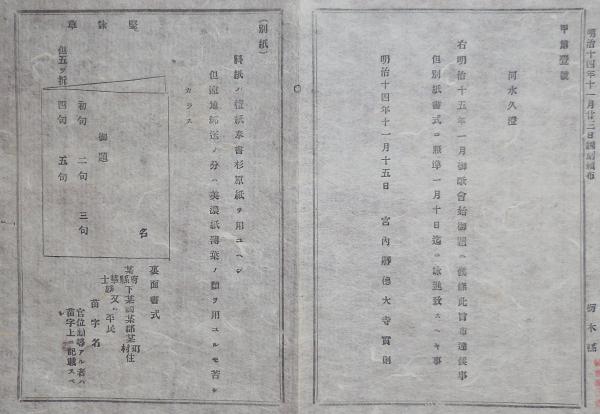 明治十四年十一月廿三日謄刻頒布
栃木縣
甲第壹號
河水久澄
右明治十五年一月御歌會始御題ニ候條此旨布達候事
但別紙書式ニ照準一月十日迄ニ詠進致スヘキ事
明治十四年十一月十五日 宮内卿德大寺實則
(別紙)
料紙ハ檀紙奉書杉原紙ヲ用ユヘシ
但遠地郵送ノ分ハ美濃紙薄葉ノ類ヲ用ユルモ苦シ
カラス
竪詠草
名
御題
初句 二句 三句
四句 五句
但五ツ折
裏面書式
府縣下某國某郡某町村住
華士族又ハ平民
苗字名
官位勳等アル者ハ
苗字上ニ記載スヘシ